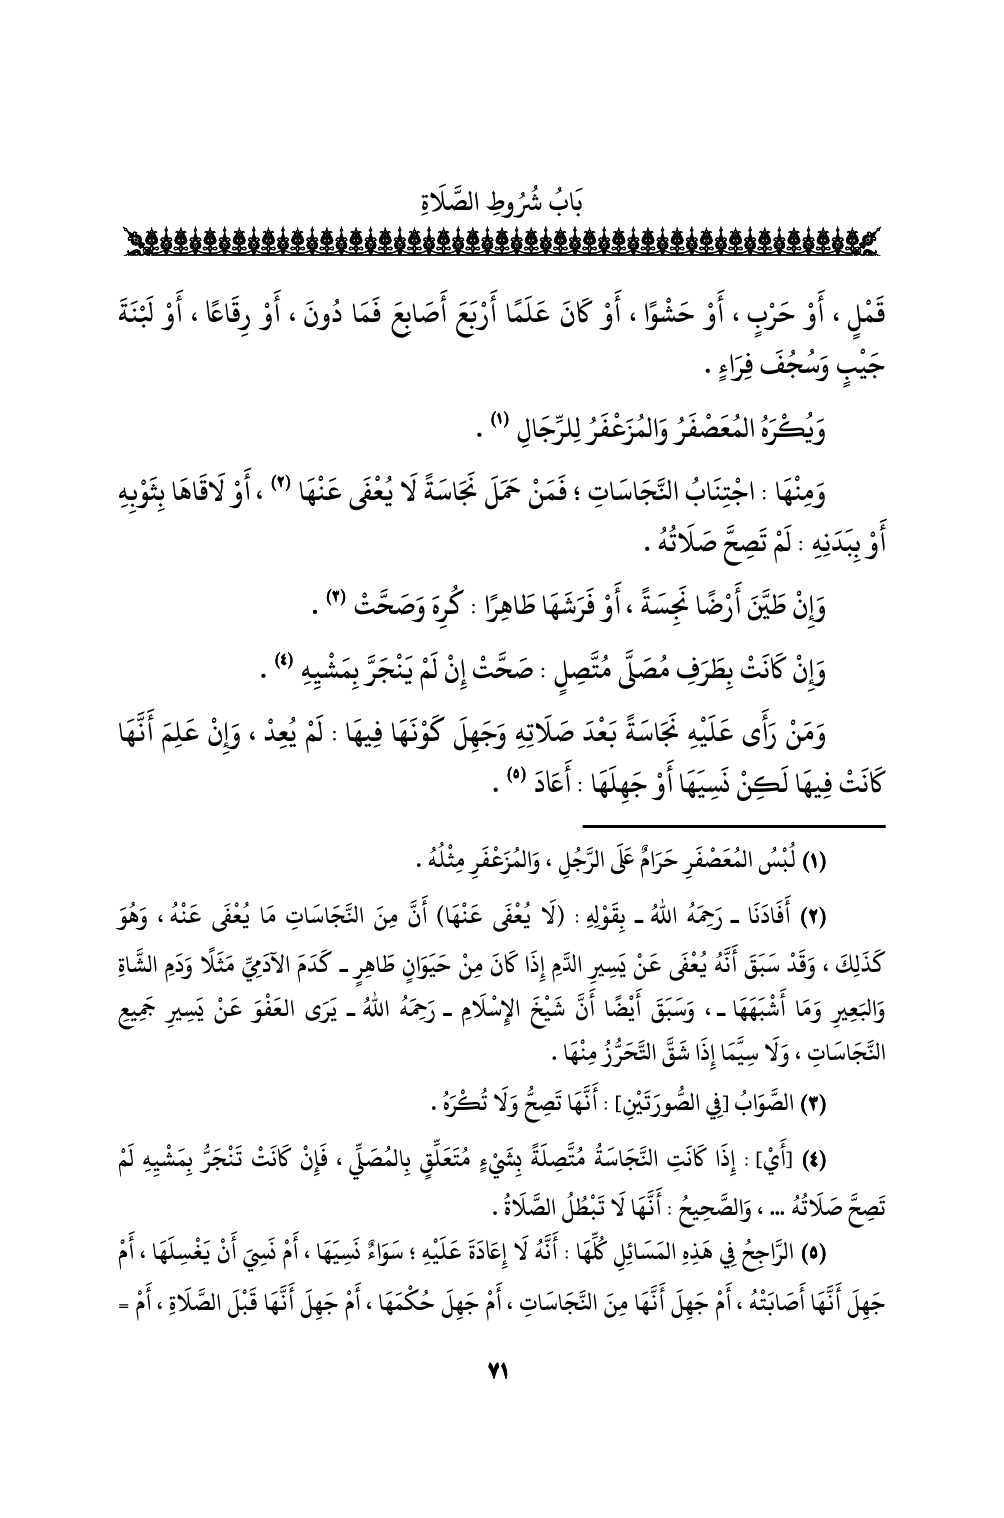 بَابُ شُرُوطِ الصَّلَاةِ
قَمْلٍ ، أَوْ حَرْبٍ ، أَوْ حَشْوًا ، أَوْ كَانَ عَلَمًا أَرْبَعَ أَصَابِعَ فَمَا دُونَ ، أَوْ رِقَاعًا ، أَوْ لَبْنَةَ
جَيْبٍ وَسُجُفَ فِرَاءٍ .
وَيُكْرَهُ المُعَصْفَرُ وَالمُزَعْفَرُ لِلرِّجَالِ (١) .
وَمِنْهَا : اجْتِنَابُ النَّجَاسَاتِ ؛ فَمَنْ حَمَلَ نَجَاسَةً لَا يُعْفَى عَنْهَا (٢) ، أَوْ لَاقَاهَا بِثَوْبِهِ
أَوْ بِبَدَنِهِ : لَمْ تَصِحَّ صَلَاتُهُ .
وَإِنْ طَيَّنَ أَرْضًا نَجِسَةً ، أَوْ فَرَشَهَا طَاهِرًا : كُرِهَ وَصَحَّتْ (٣) .
وَإِنْ كَانَتْ بِطَرَفِ مُصَلَّى مُتَّصِلٍ : صَحَّتْ إِنْ لَمْ يَنْجَرَّ بِمَشْيِهِ (٤) .
وَمَنْ رَأَى عَلَيْهِ نَجَاسَةً بَعْدَ صَلَاتِهِ وَجَهِلَ كَوْنَهَا فِيهَا : لَمْ يُعِدْ ، وَإِنْ عَلِمَ أَنَّهَا
كَانَتْ فِيهَا لَكِنْ نَسِيَهَا أَوْ جَهِلَهَا : أَعَادَ (٥) .
(١) لُبْسُ المُعَصْفَرِ حَرَامٌ عَلَى الرَّجُلِ ، وَالمُزَعْفَرِ مِثْلُهُ .
(٢) أَفَادَنَا ـ رَحِمَهُ اللهُ ـ بِقَوْلِهِ : (لَا يُعْفَى عَنْهَا) أَنَّ مِنَ النَّجَاسَاتِ مَا يُعْفَى عَنْهُ ، وَهُوَ
كَذَلِكَ ، وَقَدْ سَبَقَ أَنَّهُ يُعْفَى عَنْ يَسِيرِ الدَّمِ إِذَا كَانَ مِنْ حَيَوَانٍ طَاهِرٍ ـ كَدَمَ الآدَمِيِّ مَثَلًا وَدَمِ الشَّاةِ
وَالبَعِيرِ وَمَا أَشْبَهَهَا ـ ، وَسَبَقَ أَيْضًا أَنَّ شَيْخَ الإِسْلَامِ ـ رَحِمَهُ اللهُ ـ يَرَى العَفْوَ عَنْ يَسِيرِ جَمِيعِ
النَّجَاسَاتِ ، وَلَا سِيَّمَا إِذَا شَقَّ التَّحَرُّزُ مِنْهَا .
(٣) الصَّوَابُ [فِي الصُّورَتَيْنِ] : أَنَّهَا تَصِحُّ وَلَا تُكْرَهُ .
(٤) [أَيْ] : إِذَا كَانَتِ النَّجَاسَةُ مُتَّصِلَةً بِشَيْءٍ مُتَعَلِّقٍ بِالمُصَلِّي ، فَإِنْ كَانَتْ تَنْجَرُّ بِمَشْيِهِ لَمْ
تَصِحَّ صَلَاتُهُ ... ، وَالصَّحِيحُ : أَنَّهَا لَا تَبْطُلُ الصَّلَاةُ .
(٥) الرَّاجِحُ فِي هَذِهِ المَسَائِلِ كُلِّهَا : أَنَّهُ لَا إِعَادَةَ عَلَيْهِ ؛ سَوَاءٌ نَسِيَهَا ، أَمْ نَسِيَ أَنْ يَغْسِلَهَا ، أَمْ
جَهِلَ أَنَّهَا أَصَابَتْهُ ، أَمْ جَهِلَ أَنَّهَا مِنَ النَّجَاسَاتِ ، أَمْ جَهِلَ حُكْمَهَا ، أَمْ جَهِلَ أَنَّهَا قَبْلَ الصَّلَاةِ ، أَمْ =
٧١